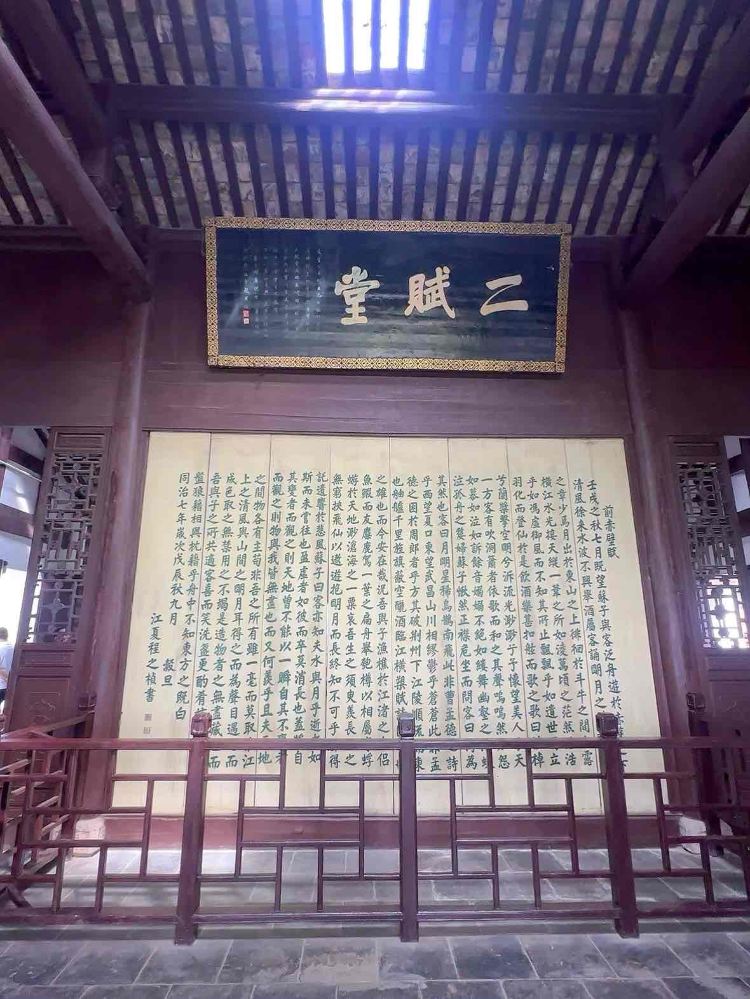 二賦堂
前赤壁賦
壬戌之秋七月既望蘇子與客泛舟遊於
清風徐來水波不興舉酒屬客誦明月之
之章少焉月出於東山之上徘徊於斗牛之間 露
橫江水光接天縱一葦之所如淩萬頃之茫然浩
乎如馮虛御風而不知其所止飄飄乎如遺世 立
羽化而登仙於是飲酒樂甚扣舷而歌之歌曰 棹
兮蘭槳擊空明兮泝流光渺渺兮予懷望美人 天
一方客有吹洞簫者依歌而和之其聲嗚嗚然 怨
如慕如泣如訴餘音嫋嫋不絕如縷舞幽壑之 蛟
泣孤舟之嫠婦蘇子愀然正襟危坐而問客曰 為
其然也客曰月明星稀烏鵲南飛此非曹孟德之詩
乎西望夏口東望武昌山川相繆鬱乎蒼蒼此非孟
德之困於周郎者乎方其破荊州下江陵順流 東
也舳艫千里旌旗蔽空釃酒臨江橫槊賦詩
之雄也而今安在哉況吾與子漁樵於江渚之 侶
魚鰕而友麋鹿駕一葉之扁舟舉匏樽以相屬 蜉
蝣於天地渺滄海之一粟哀吾生之須臾羨長 之
無窮挾飛仙以遨遊抱明月而長終知不可乎 得
託遺響於悲風蘇子曰客亦知夫水與月乎逝 如
斯而未嘗往也盈虛者如彼而卒莫消長也蓋將自
其變者而觀之則天地曾不能以一瞬自其不 者
而觀之則物與我皆無盡也而又何羨乎且夫 地
之間物各有主苟非吾之所有雖一毫而莫取 江
上之清風與山間之明月耳得之而為聲目遇 而
成色取之無禁用之不竭是造物者之無盡藏 而
吾與子之所共適客喜而笑洗盞更酌肴
盤狼藉相與枕藉乎舟中不知東方之既白
同治七年歲次戊辰秋九月 穀旦
江夏程之楨書